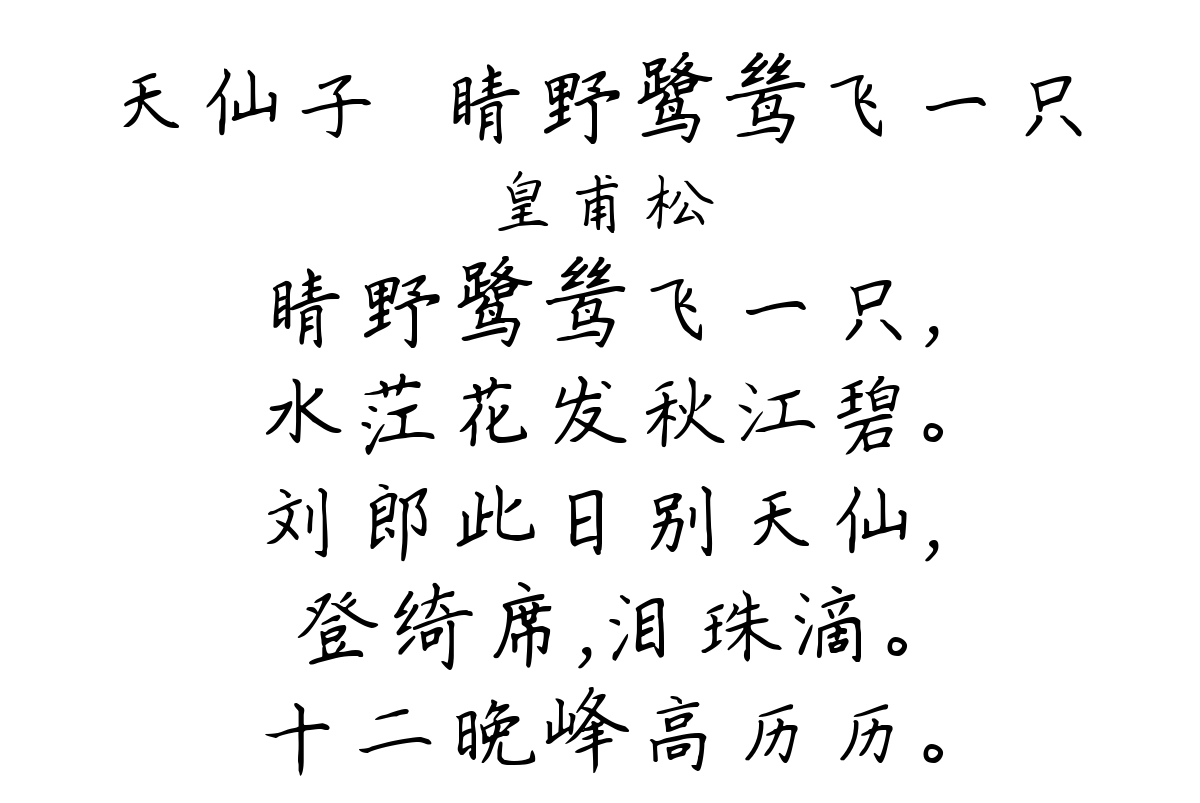 天仙子 晴野鹭鸶飞一只
皇甫松
晴野鹭鸶飞一只,
水茳花发秋江碧。
刘郎此日别天仙,
登绮席,泪珠滴。
十二晚峰高历历。